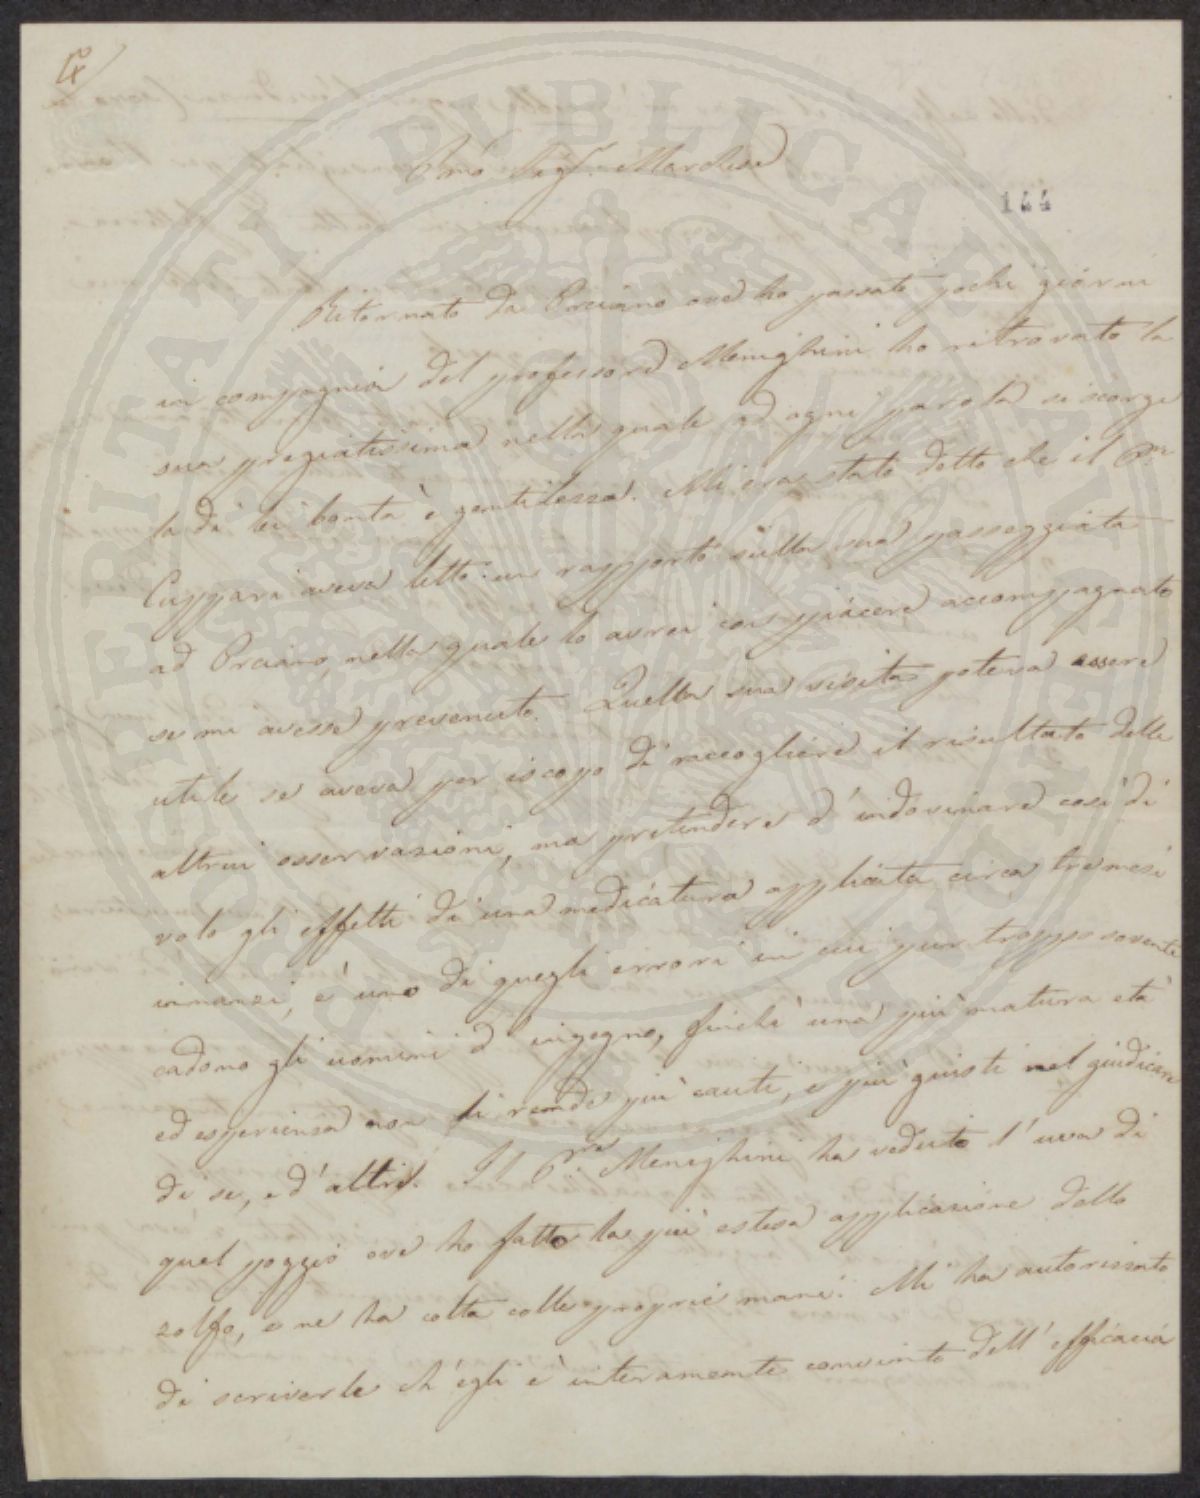 Pmo Sigr. Marchese
144
Ritornato da Orciano ove ho passato pochi giorni
in compagnia del professore Meneghini ho ritrovato la
sua pregiatissima nella quale ad ogni parola si scorge
la di lei bontà è gentilezza. Mi era stato detto che il Pre
Cuppari aveva letto un rapporto sulla sua passeggiata
ad Orciano, nella quale lo avrei con piacere accompagnato
se mi avesse prevenuto. Quella sua visita poteva essere
utile se aveva per iscopo di raccogliere il risultato delle
altrui osservazioni, ma pretendere d'indovinare così di
volo gli effetti di una medicatura applicata circa tre mesi
innanzi, è uno di quegli errori in cui pur troppo sovente
cadono gli uomini d'ingegno, finchè una più matura età
ed esperienza non li rende più cauti, e più giusti nel giudicare
di se, e d'altri. Il Pre. Meneghini ha veduto l'uva di
quel poggio ove ho fatto la più estesa applicazione dello
zolfo, e ne ha colta colle proprie mani. Mi ha autorizzato
di scriverle ch'egli è interamente convinto dell'efficacia
PERITATI PVBLICAE